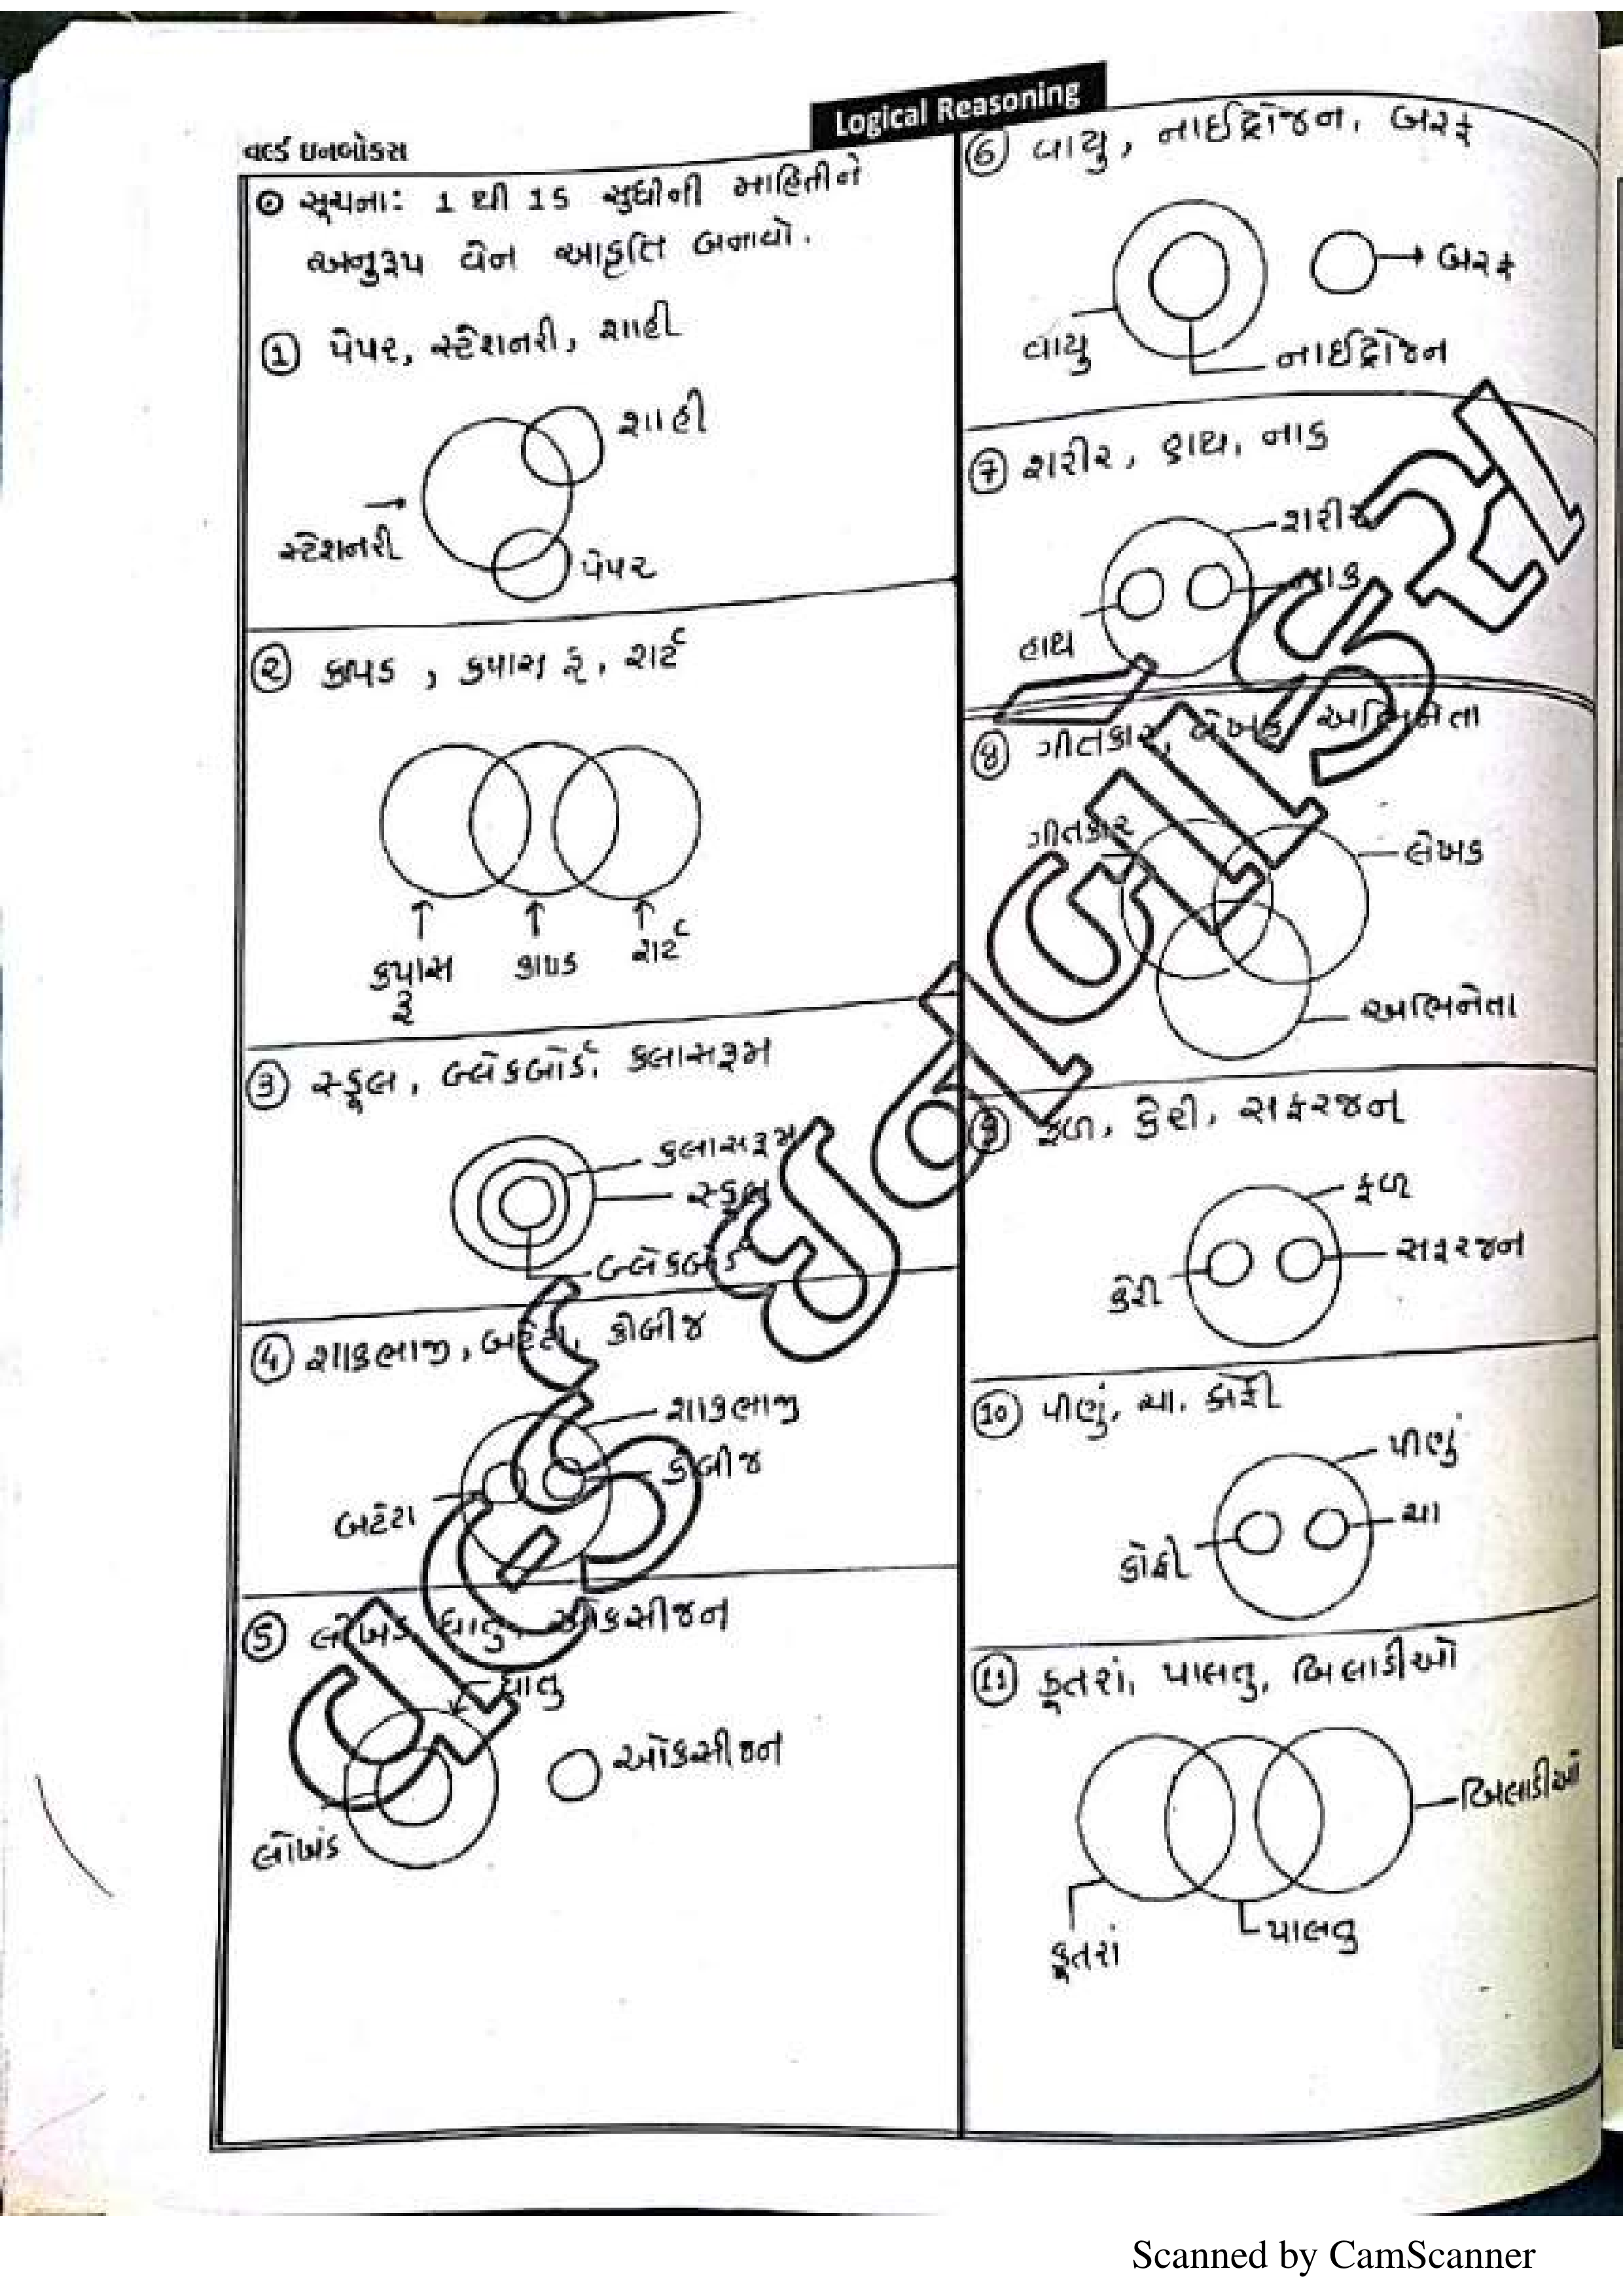 Logical Reasoning
વર્લ્ડ ઇનબોક્સ
⊙ સૂચના: 1 થી 15 સુધીની માહિતીને
અનુરૂપ વેન આકૃતિ બનાવો.
① પેપર, સ્ટેશનરી, શાહી
શાહી
સ્ટેશનરી
પેપર
② કાપડ, કપાસ રૂ, શર્ટ
કપાસ રૂ
કાપડ
શર્ટ
③ સ્કૂલ, બ્લેકબોર્ડ, કલાસરૂમ
કલાસરૂમ
સ્કૂલ
બ્લેકબોર્ડ
④ શાકભાજી, બટેટા, કોબીજ
શાકભાજી
કોબીજ
બટેટા
⑤ લોખંડ, ધાતુ, ઓકસીજન
ધાતુ
ઓકસીજન
લોખંડ
⑥ વાયુ, નાઈટ્રોજન, બરફ
બરફ
વાયુ
નાઈટ્રોજન
⑦ શરીર, હાથ, નાક
શરીર
નાક
હાથ
⑧ ગીતકાર, લેખક, અભિનેતા
ગીતકાર
લેખક
અભિનેતા
⑨ ફળ, કેરી, સફરજન
ફળ
સફરજન
કેરી
⑩ પીણું, ચા, કોફી
પીણું
ચા
કોફી
⑪ કૂતરાં, પાલતુ, બિલાડીઓ
બિલાડીઓ
પાલતુ
કૂતરાં
Scanned by CamScanner